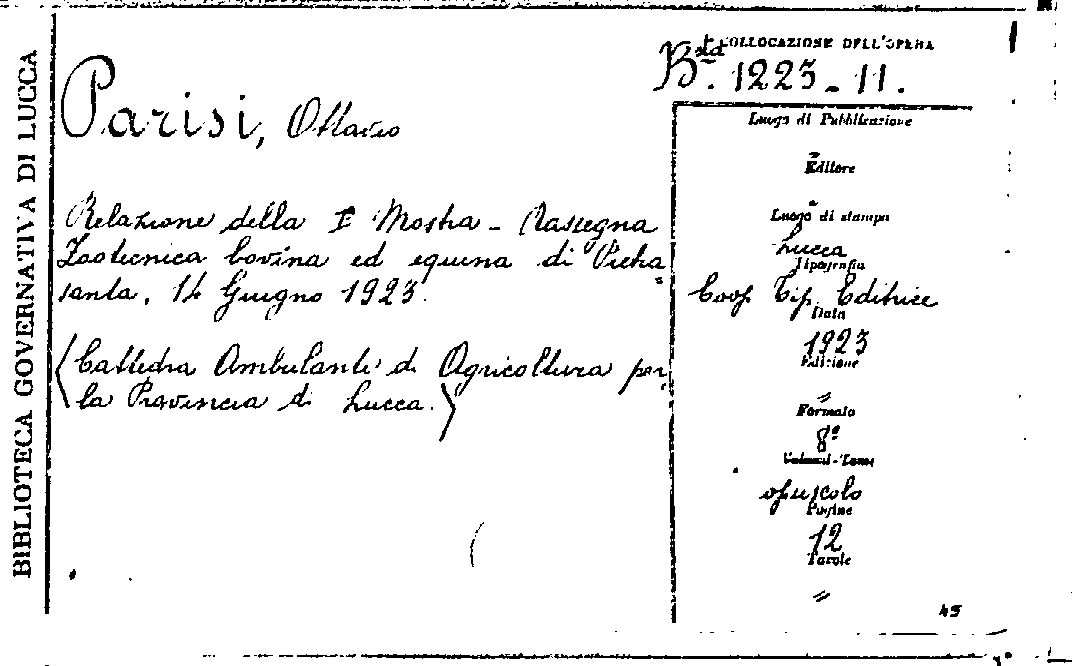 BIBLIOTECA GOVERNATIVA DI LUCCA
COLLOCAZIONE DELL'OPERA
Bsta. 1223-11.
Parisi, Ottavio
Relazione della I Mostra - Rassegna
Zootecnica bovina ed equina di Pietra
santa, 14 Giugno 1923.
(Cattedra Ambulante di Agricoltura per
la Provincia di Lucca.)
Luogo di Pubblicazione
"
Editore
"
Luogo di stampa
Lucca
Tipografia
Coop. Tip. Editrice
Data
1923
Edizione
"
Formato
8°
Volumi-Tomi
opuscolo
Pagine
12
Tavole
"
45